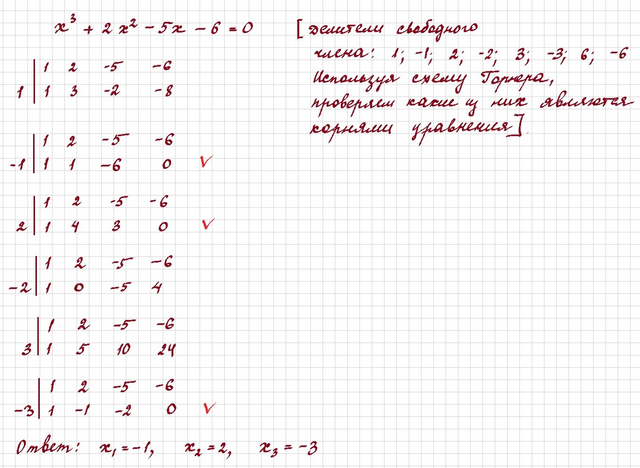 x³ + 2x² - 5x - 6 = 0
[Делители свободного
члена: 1; -1; 2; -2; 3; -3; 6; -6
Используя схему Горнера,
проверяем какие из них являются
корнями уравнения].
1 2 -5 -6
1 | 1 3 -2 -8
1 2 -5 -6
-1 | 1 1 -6 0 ✓
1 2 -5 -6
2 | 1 4 3 0 ✓
1 2 -5 -6
-2 | 1 0 -5 4
1 2 -5 -6
3 | 1 5 10 24
1 2 -5 -6
-3 | 1 -1 -2 0 ✓
Ответ: x₁ = -1, x₂ = 2, x₃ = -3